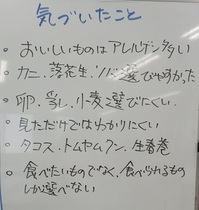 気づいたこと
・おいしいものはアレルゲン多い
・カニ、落花生、ソバ選びやすかった
・卵、乳、小麦選びにくい
・見ただけではわかりにくい
・タコス・トムヤムクン・生春巻
・食べたいものでなく、食べられるもの
しか選べない